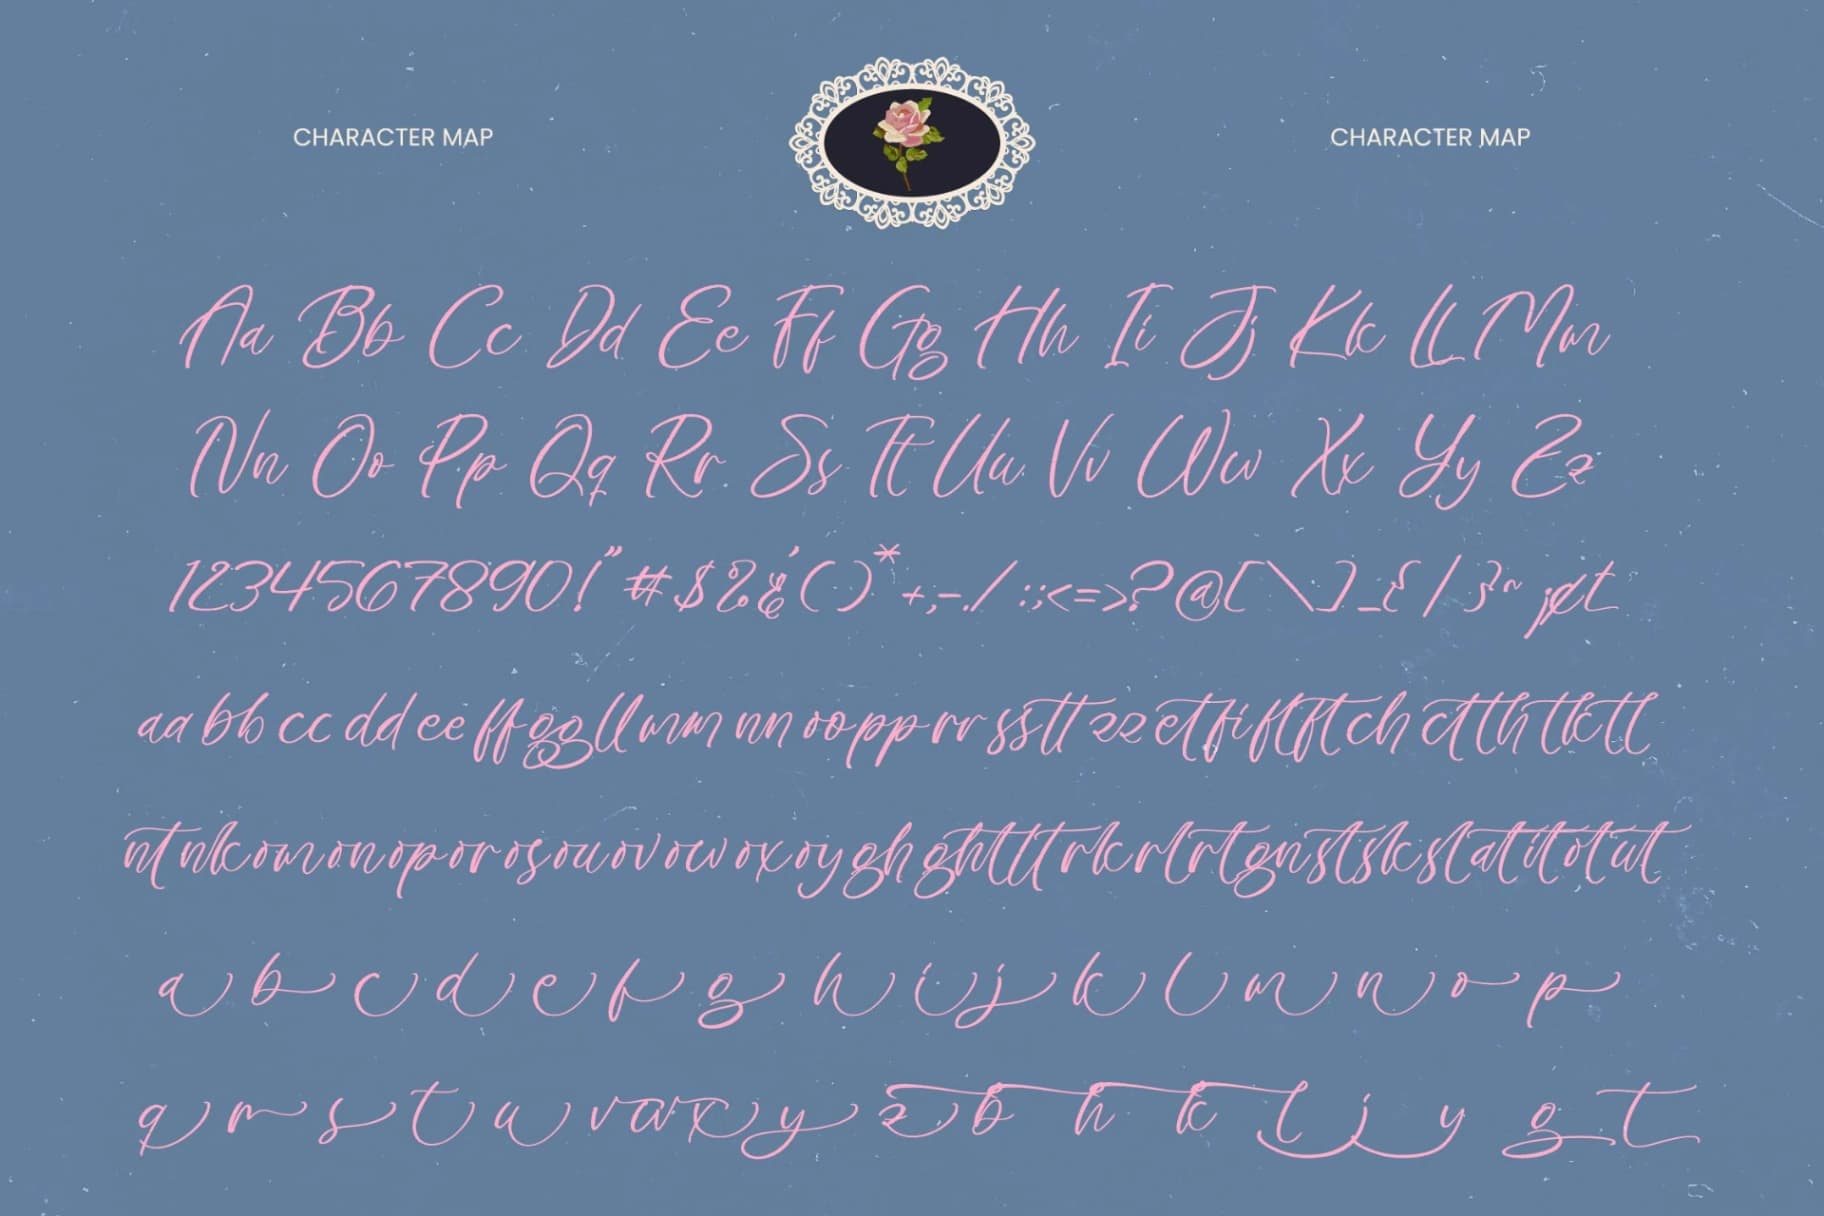 CHARACTER MAP CHARACTER MAP
Aa Bb Cc Dd Ee Ff Gg Hh Ii Jj Kk Ll Mm
Nn Oo Pp Qq Rr Ss Tt Uu Vv Ww Xx Yy Zz
1234567890!"#$%&'()*+,-./:;<=>?@[\]_{|}~¡¢£
aa bb cc dd ee ff gg ll mm nn oo pp rr ss tt zz et fi fl ft ch ct th tk tl
nt nk om on op or os ou ov ow ox oy gh ght tt rk rl rt gn st sk sl at it ot ut
a b c d e f g h i j k l m n o p
q r s t u v w x y z b h k l j y g t